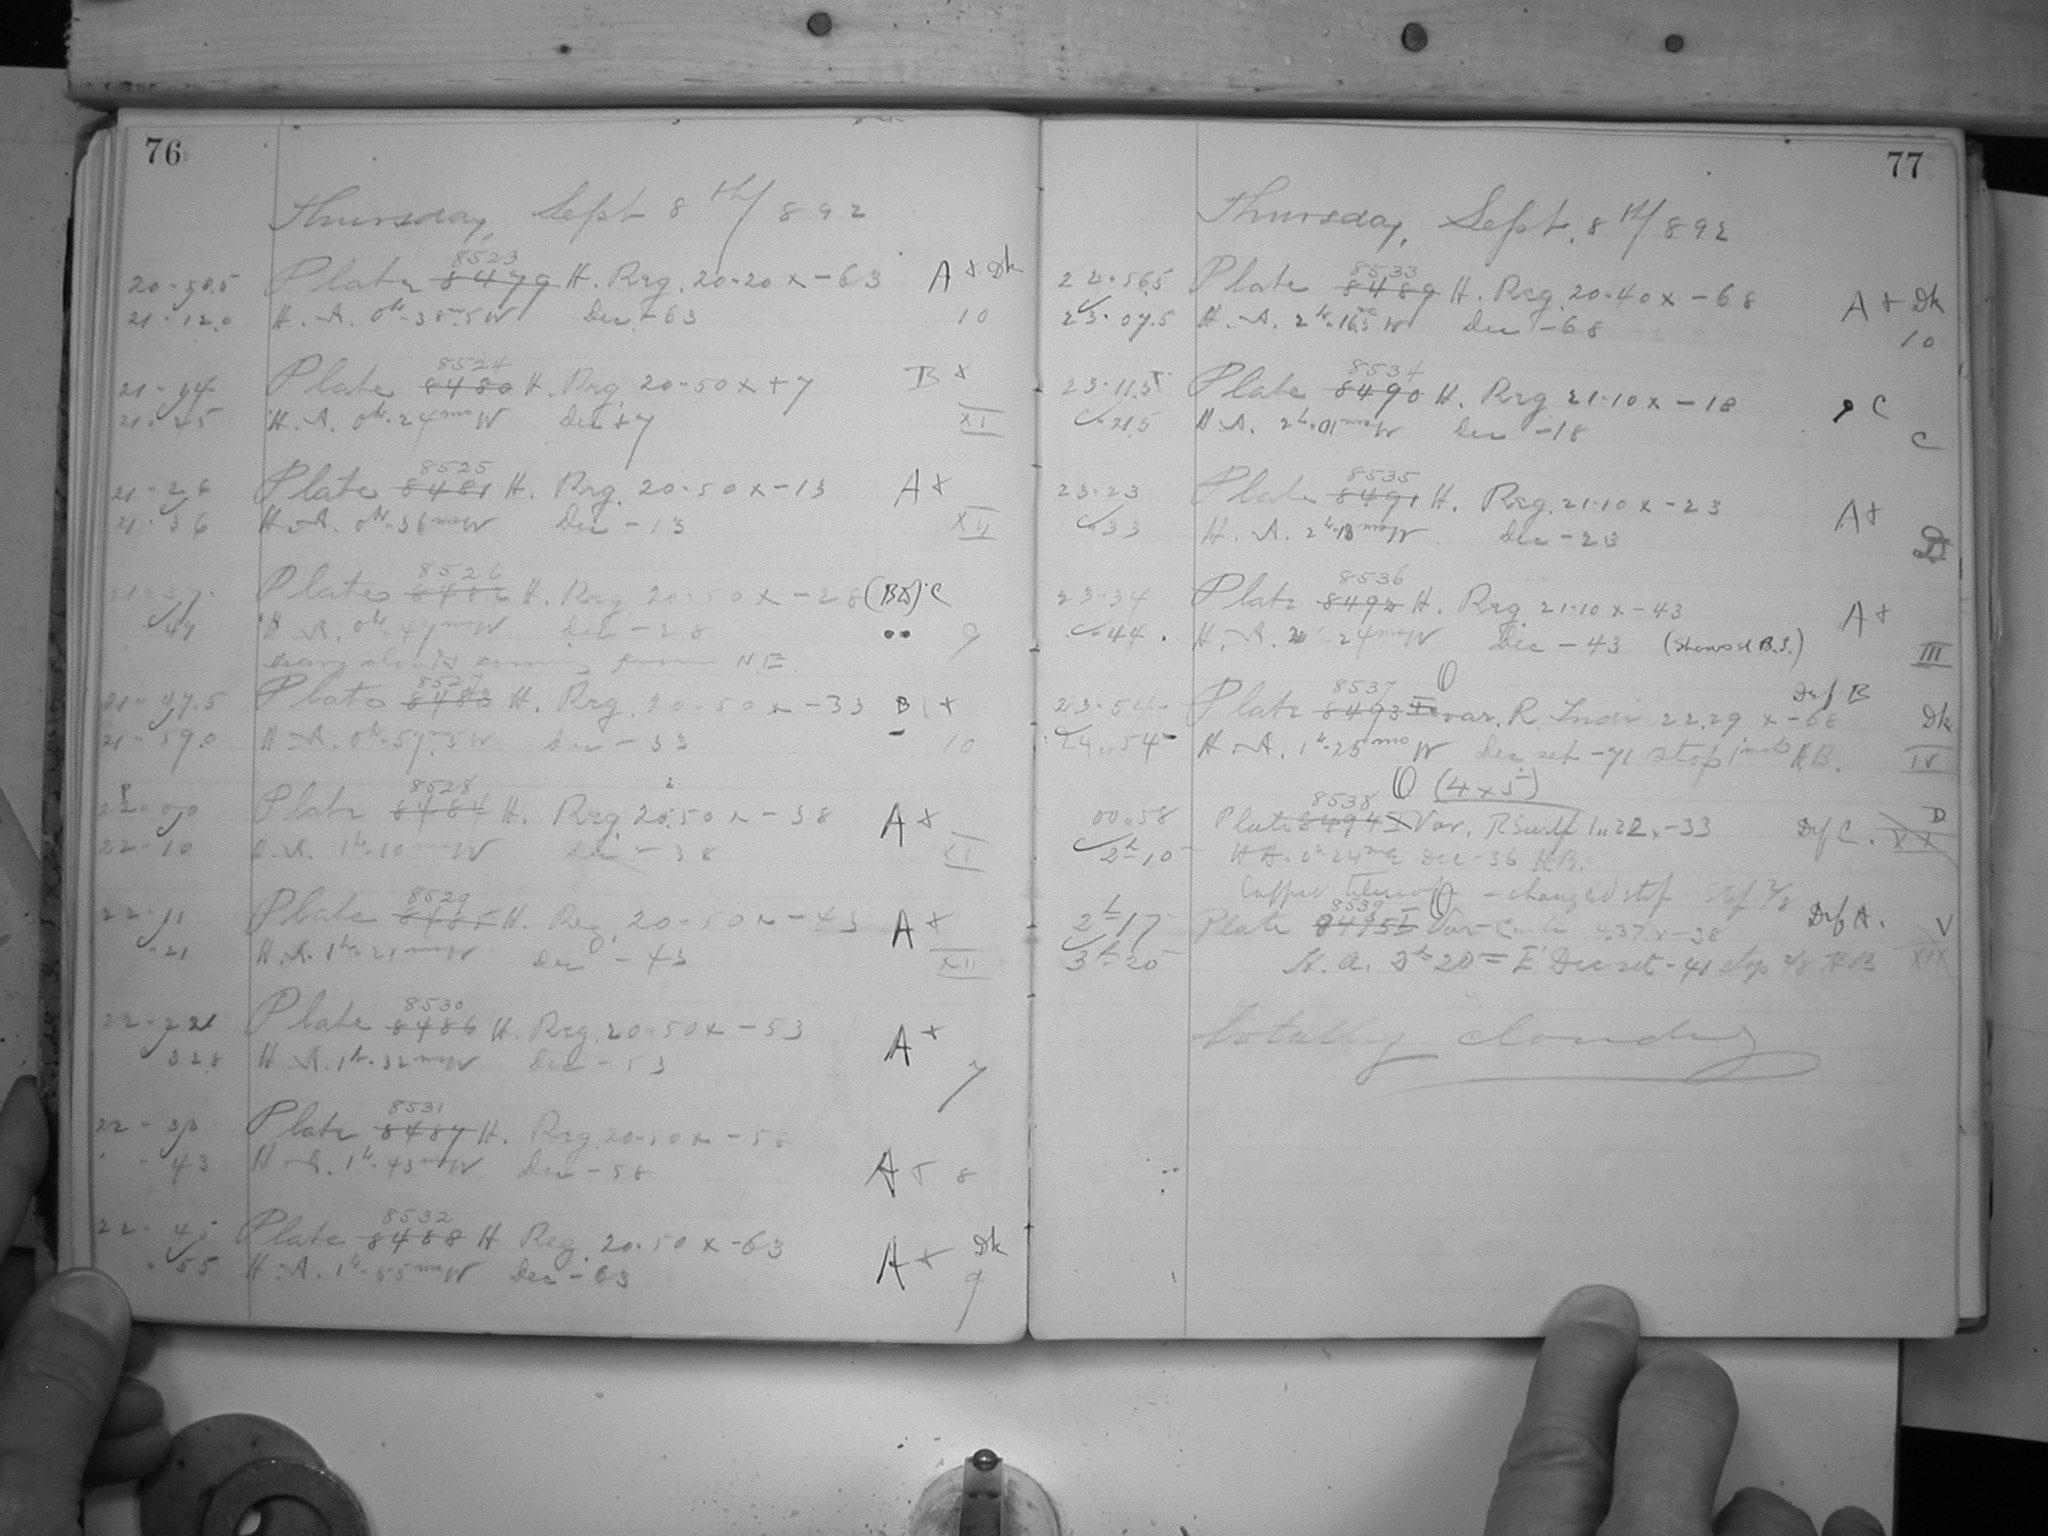 76
Thursday, Sept 8th/892
8523
20-50.5 Plate 8479 H. Reg. 20-20 x -63 A + Dk
21-12.0 H. A. 0h-38m.5W Dec -63 10
8524
21-14 Plate 8480 H. Reg. 20-50 x +7 B +
21-25 H. A. 0h-24m W Dec +7 XI
8525
21-26 Plate 8481 H. Reg. 20-50 x -13 A +
21-36 H. A. 0h-36m W Dec -13 XII
8526
21-37 Plate 8482 H. Reg. 20-50 x -28 (B+) C
47 H. A. 0h-47m W Dec -28 9
heavy clouds coming from N.E.
8527
21-47.5 Plate 8483 H. Reg. 20-50 x -33 B +
21-59.0 H. A. 0h-57m.5W Dec -33 10
8528
22-00 Plate 8484 H. Reg. 20-50 x -38 A +
22-10 H. A. 1h-10m W Dec -38 XI
8529
22-11 Plate 8485 H. Reg. 20-50 x -43 A +
-21 H. A. 1h-21m W Dec -43 XII
8530
22-22 Plate 8486 H. Reg. 20-50 x -53 A +
32.8 H. A. 1h-32m W Dec -53 7
8531
22-33 Plate 8487 H. Reg. 20-50 x -58
-43 H. A. 1h-43m W Dec -58 A + 8
8532
22-45 Plate 8488 H Reg. 20-50 x -63 A + Dk
-55 H. A. 1h-55m W Dec -63 9
77
Thursday, Sept. 8th/892
8533
22-56.5 Plate 8489 H. Reg. 20-40 x -68 A + Dk
23-07.5 H. A. 2h-16.5m W Dec -68 10
8534
23-11.5 Plate 8490 H. Reg 21-10 x -18 C
21.5 H. A. 2h-01m W Dec -18 C
8535
23-23 Plate 8491 H. Reg. 21-10 x -23 A +
33 H. A. 2h-13m W Dec -23 D
8536
23-34 Plate 8492 H. Reg. 21-10 x -43 A +
44 H. A. 2h-24m W Dec -43 (Showed B.S.) III
8537 Def B
23-54 Plate 8493 var. R Indi 22.29 x -68 Dk
24-54 H. A. 1h-25m W Dec set -71 stop H.B. IV
(4 x 5)
8538
00-58 Plate 8494 Var. R Sculp 1-22 x -33 Def C. D
2h-10 H A. 0h 24m E Dec -36 H.B.
Capped telescope - changed stop
8539
2h-17 Plate 8495 Var 4.37 x -38 Def A. V
3h-20 H. A. 3h 20m E Dec set -41 stop H B XIX
totally cloudy